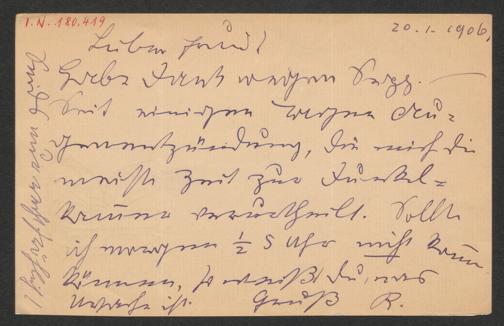 I.N. 180.419
20.1.1906.
Lieber Freund!
Habe Dank wegen
Seit einigen Tagen Au-
genentzündung, die mich die
meiste Zeit zur Dunkel-
kammer verurtheilt. Sollte
ich morgen ½ 5 Uhr nicht kommen
können, so weißt Du, was
Ursache ist. Gruß R.